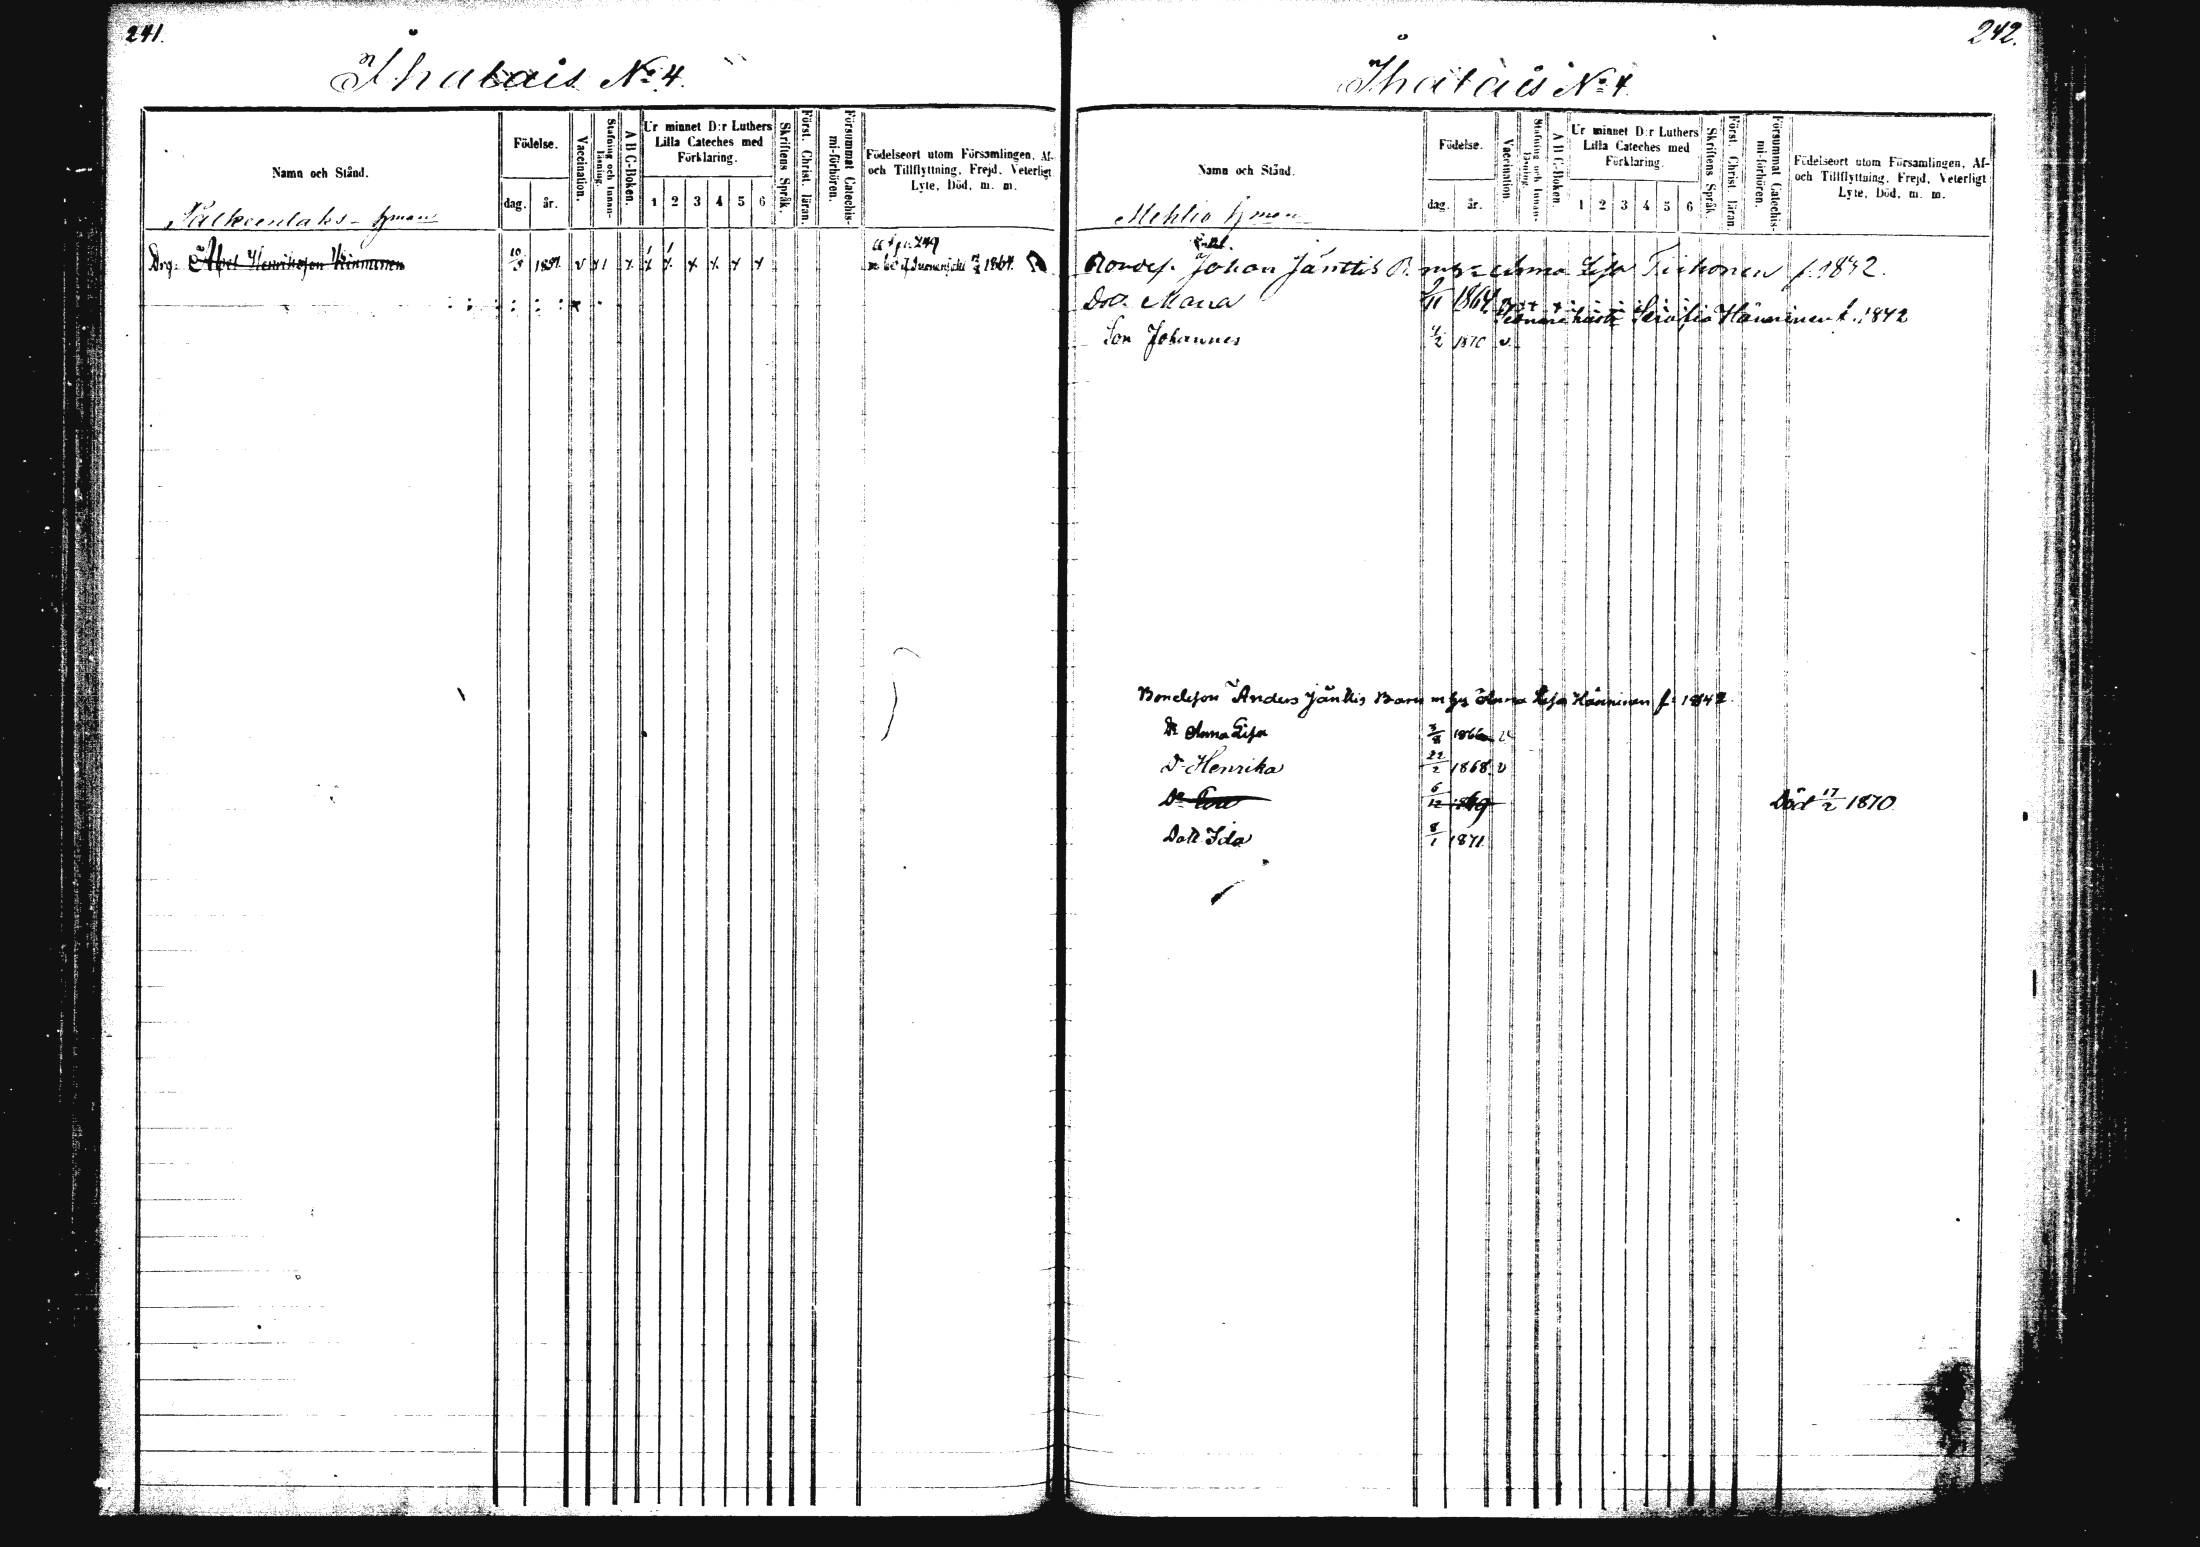 241.
Ihatais No 4.
Namn och Stånd.
Födelse.
dag. år.
Vaccination.
Stafning och Innan-läsning.
A B C-Boken.
Ur minnet D:r Luthers Lilla Cateches med Förklaring.
1 2 3 4 5 6
Skriftens Språk.
Först. Christ. läran.
Försummat Catechis-mi-förhören.
Födelseort utom Församlingen, Af- och Tillflyttning, Frejd, Veterligt Lyte, Död, m. m.
Hman
Drg: Henriksson Kinnunen 10/3 v x 1 x x x x x x x 1864.
249
242.
Ihatais No 4
Namn och Stånd.
Födelse.
dag. år.
Vaccination.
Stafning och Innan-läsning.
A B C-Boken.
Ur minnet D:r Luthers Lilla Cateches med Förklaring.
1 2 3 4 5 6
Skriftens Språk.
Först. Christ. läran.
Försummat Catechis-mi-förhören.
Födelseort utom Församlingen, Af- och Tillflyttning, Frejd, Veterligt Lyte, Död, m. m.
Mehtio Hman
Bondes. Johan Jänttis B. Anna Lisa f. 1842.
Dot. Maria 1864
Hänninen f. 1842
Son Johannes 1870 v.
Bondeson Anders Jänttis Barn m hu Anna Lisa Hänninen f: 1842
Dr Anna Lisa 3/8 1866
Dr Henrika 22/2 1868 v
Dr Eva 6/12 1869 Död 17/2 1870.
Dott Ida 8/1 1871